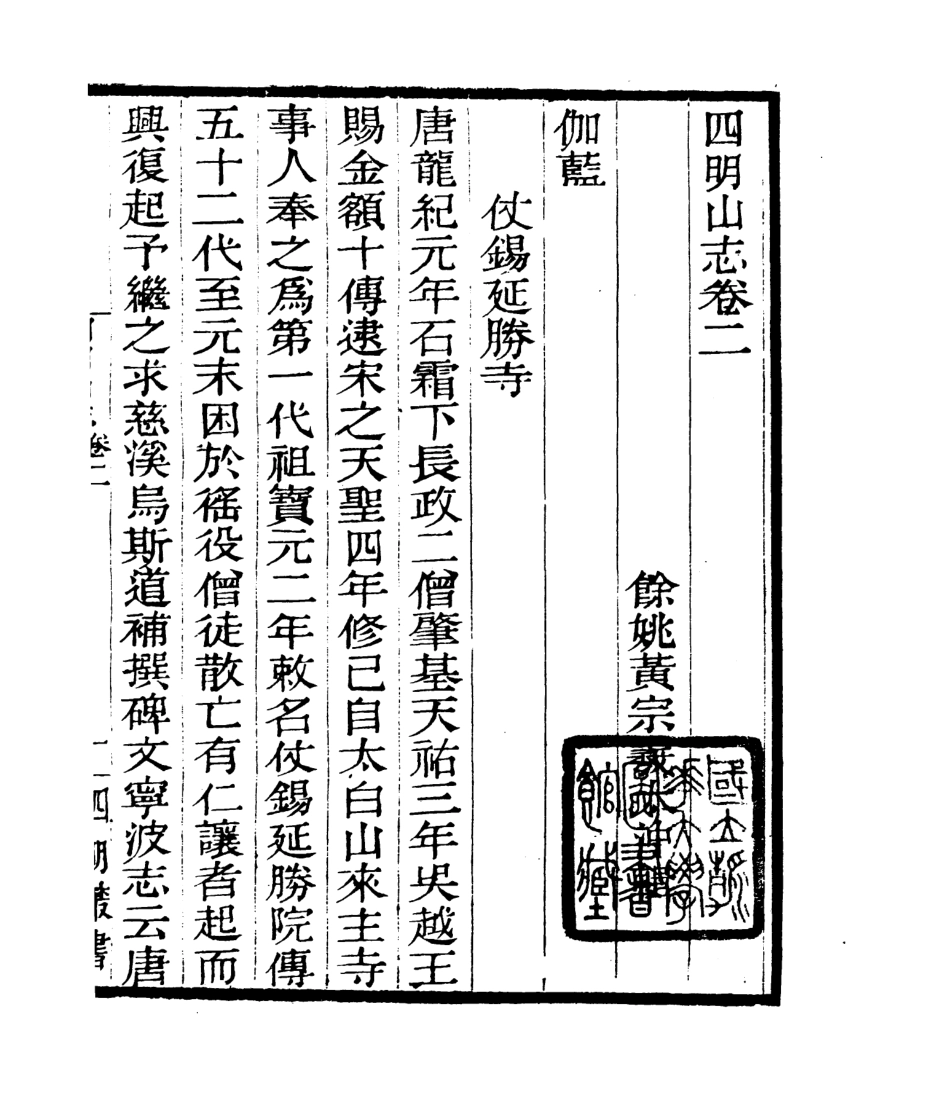 四明山志卷二
餘姚黃宗羲
伽藍
仗錫延勝寺
唐龍紀元年石霜下長政二僧肇基天祐三年吳越王
賜金額十傳逮宋之天聖四年修己自太白山來主寺
事人奉之爲第一代祖寶元二年敕名仗錫延勝院傳
五十二代至元末困於徭役僧徒散亡有仁讓者起而
興復起予繼之求慈溪烏斯道補撰碑文寧波志云唐
卷二
一
四明叢書
國立
館藏